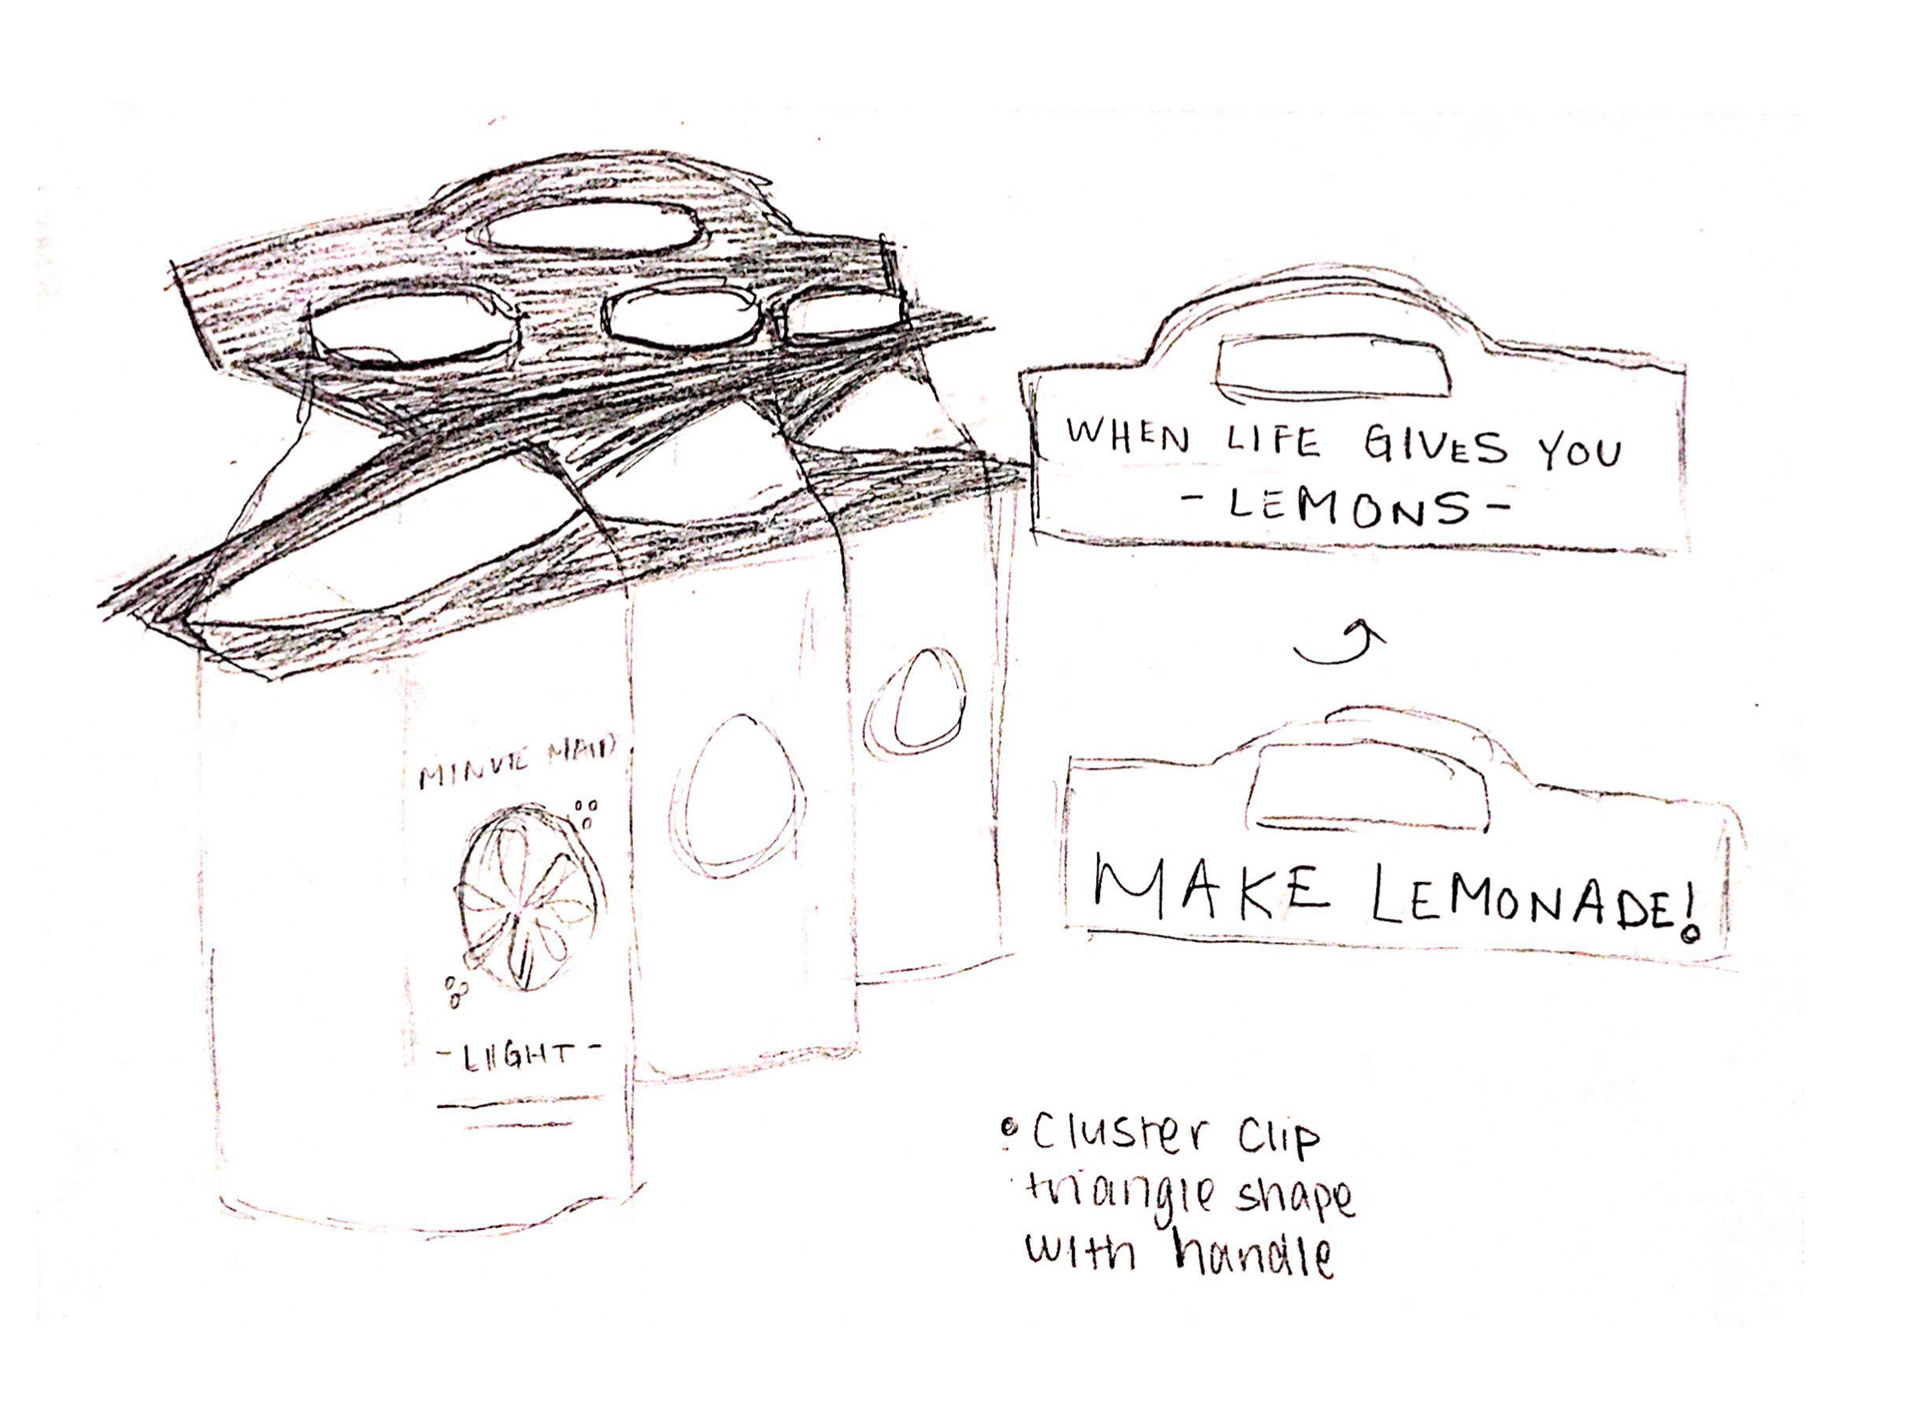 WHEN LIFE GIVES YOU
- LEMONS -
MAKE LEMONADE!
MINUTE MAID
- LIGHT -
• Cluster Clip
triangle shape
with handle